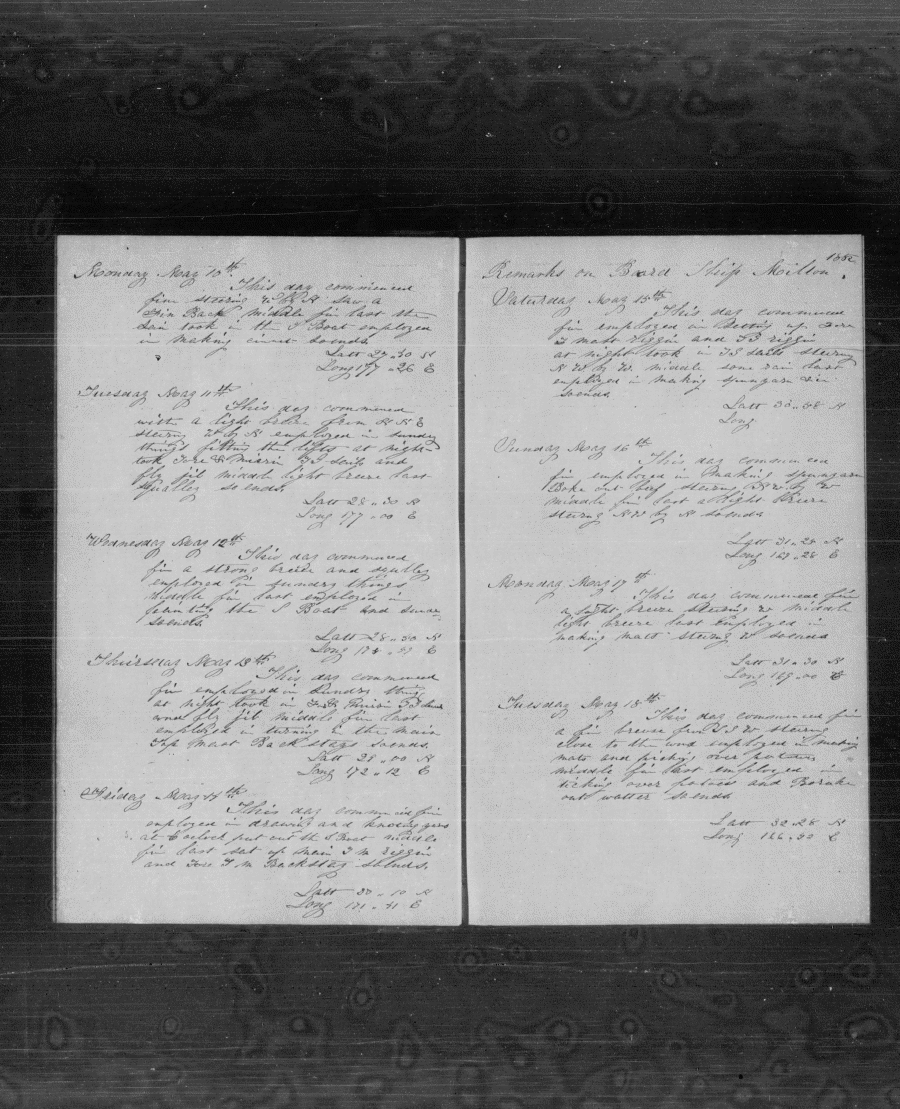 Monday May 10th
This day commenced
fine steering W by N saw a
Fin Back middle fin last the
took in the S Boat employed
in making sinnet so ends
Latt 27 .. 30 N
Long 177 .. 26 E
Tuesday May 11th
This day commenced
with a light breeze from N N E
steering W by N employed in sundry
things fitting the lifts at night
took Fore & Mizen sails and
fly jib middle light breeze last
squalley so ends
Latt 28 .. 30 N
Long 177 .. 00 E
Wednesday May 12th
This day commenced
fin a strong breeze and squalley
employed in sundry things
middle fin last employed in
painting the S Boat and
so ends
Latt 28 .. 50 N
Long E
Thursday May 13th
This day commenced
fin employed in sundry thing
at night took in
and fly jib middle fin last
employed in turning in the main
Top Mast Back stays so ends.
Latt 28 .. 00 N
Long 172 .. 12 E
Friday May 14th
This day commenced fin
employed in drawing and knoting yarns
at 6 oclock put out the S Boat middle
fin last sat up main T M riggin
and Fore T M Backstay so ends.
Latt 30 .. 10 N
Long 171 .. 41 E
1852
Remarks on Board Ship Milton.
Saturday May 15th
This day commenced
fin employed in setting up Fore
T mast riggin and riggin
at night took in sails steering
N W by W middle some rain last
employed in making spunyarn
so ends
Latt 30 .. 48 N
Long
Sunday May 16th
This day commenced
fin employed in making spunyarn
Broke out beef steering N W by W
middle fin last a light Breeze
steering N W by N so ends
Latt 31 .. 28 N
Long 169 .. 28 E
Monday May 17th
This day commence fin
a light breeze steering W middle
light breeze last employed in
making matt steering W so ends
Latt 31 .. 30 N
Long 169 .. 00 E
Tuesday May 18th
This day commenced fin
a fin breeze from S S W steering
close to the wind employed in making
mats and picking over potatoes
middle fin last employed in
picking over potatoes and Broake
out watter so ends
Latt 32 .. 28 N
Long 166 .. 30 E